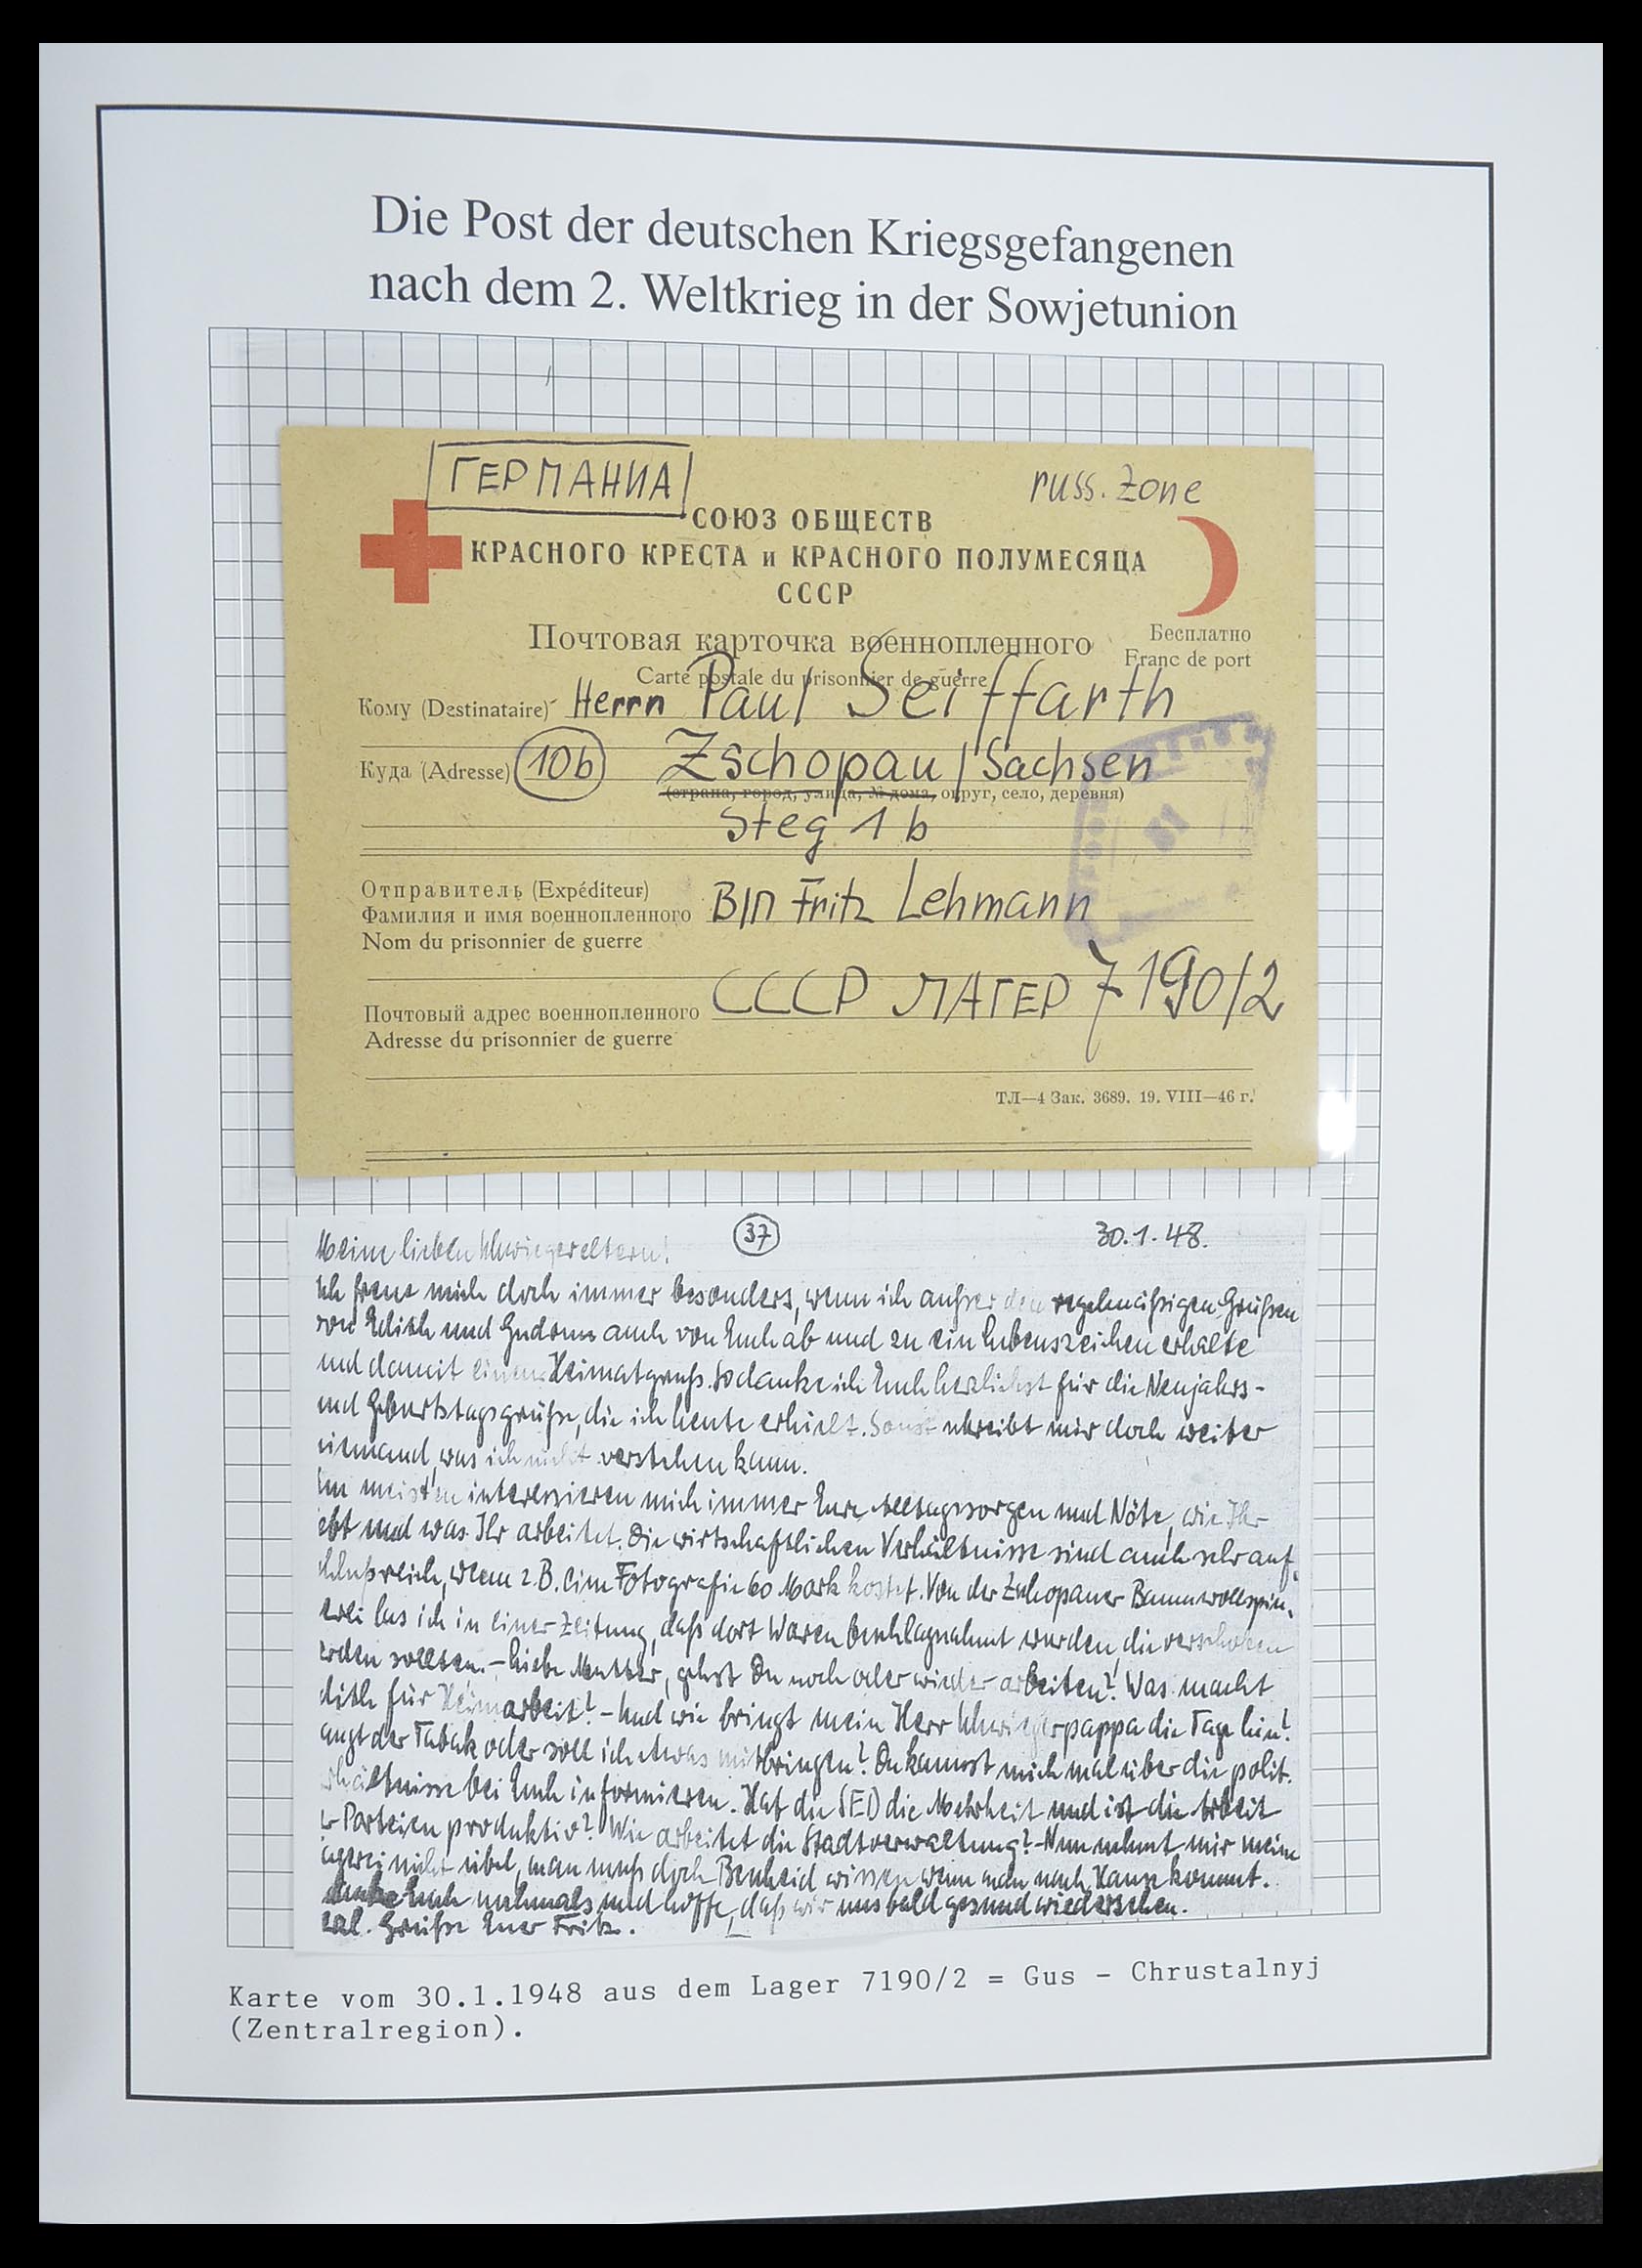 Die Post der deutschen Kriegsgefangenen
nach dem 2. Weltkrieg in der Sowjetunion
ГЕРМАНИА
russ. Zone
СОЮЗ ОБЩЕСТВ
КРАСНОГО КРЕСТА и КРАСНОГО ПОЛУМЕСЯЦА
СССР
Почтовая карточка военнопленного
Бесплатно
Carte postale du prisonnier de guerre
Franc de port
Кому (Destinataire) Herrn Paul Seiffarth
Куда (Adresse) 10b Zschopau / Sachsen
(страна, город, улица, № дома, округ, село, деревня)
Steg 1b
Отправитель (Expéditeur)
Фамилия и имя военнопленного В/П Fritz Lehmann
Nom du prisonnier de guerre
Почтовый адрес военнопленного СССР ЛАГЕР 7190/2
Adresse du prisonnier de guerre
ТЛ—4 Зак. 3689. 19. VIII—46 г.
37
30.1.48.
Meine lieben Schwiegereltern!
Ich freue mich doch immer besonders, wenn ich außer den regelmäßigen Grüßen
von Edith und auch von Euch ab und zu ein Lebenszeichen erhalte
und damit einen Heimatgruß. So danke ich Euch herzlichst für die Neujahrs-
und Geburtstagsgrüße, die ich heute erhielt. Sonst schreibt mir doch weiter
niemand, was ich nicht verstehen kann.
Am meisten interessieren mich immer Eure Alltagssorgen und Nöte, wie Ihr
ebt und was Ihr arbeitet. Die wirtschaftlichen Verhältnisse sind auch sehr auf-
schlußreich, wenn z.B. eine Fotografie 60 Mark kostet. Von der Zschopauer Baumwollspin-
erei las ich in einer Zeitung, daß dort Waren beschlagnahmt wurden, die verschoben
erden sollten. – Liebe Mutter, gehst Du noch oder wieder arbeiten? Was macht
dith für Heimarbeit? – Und wie bringt mein Herr Schwiegerpappa die Tage hin?
angt der Tabak oder soll ich etwas mitbringen? Du kannst mich mal über die polit.
rhältnisse bei Euch informieren. Hat die SED die Mehrheit und ist die Arbeit
r Parteien produktiv? Wie arbeitet die Stadtverwaltung? – Nun nehmt mir meine
agerei nicht übel, man muß doch Bescheid wissen wenn man nach Hause kommt.
danke Euch nochmals und hoffe, daß wir uns bald gesund wiedersehen.
Grüße Euer Fritz.
Karte vom 30.1.1948 aus dem Lager 7190/2 = Gus – Chrustalnyj
(Zentralregion).